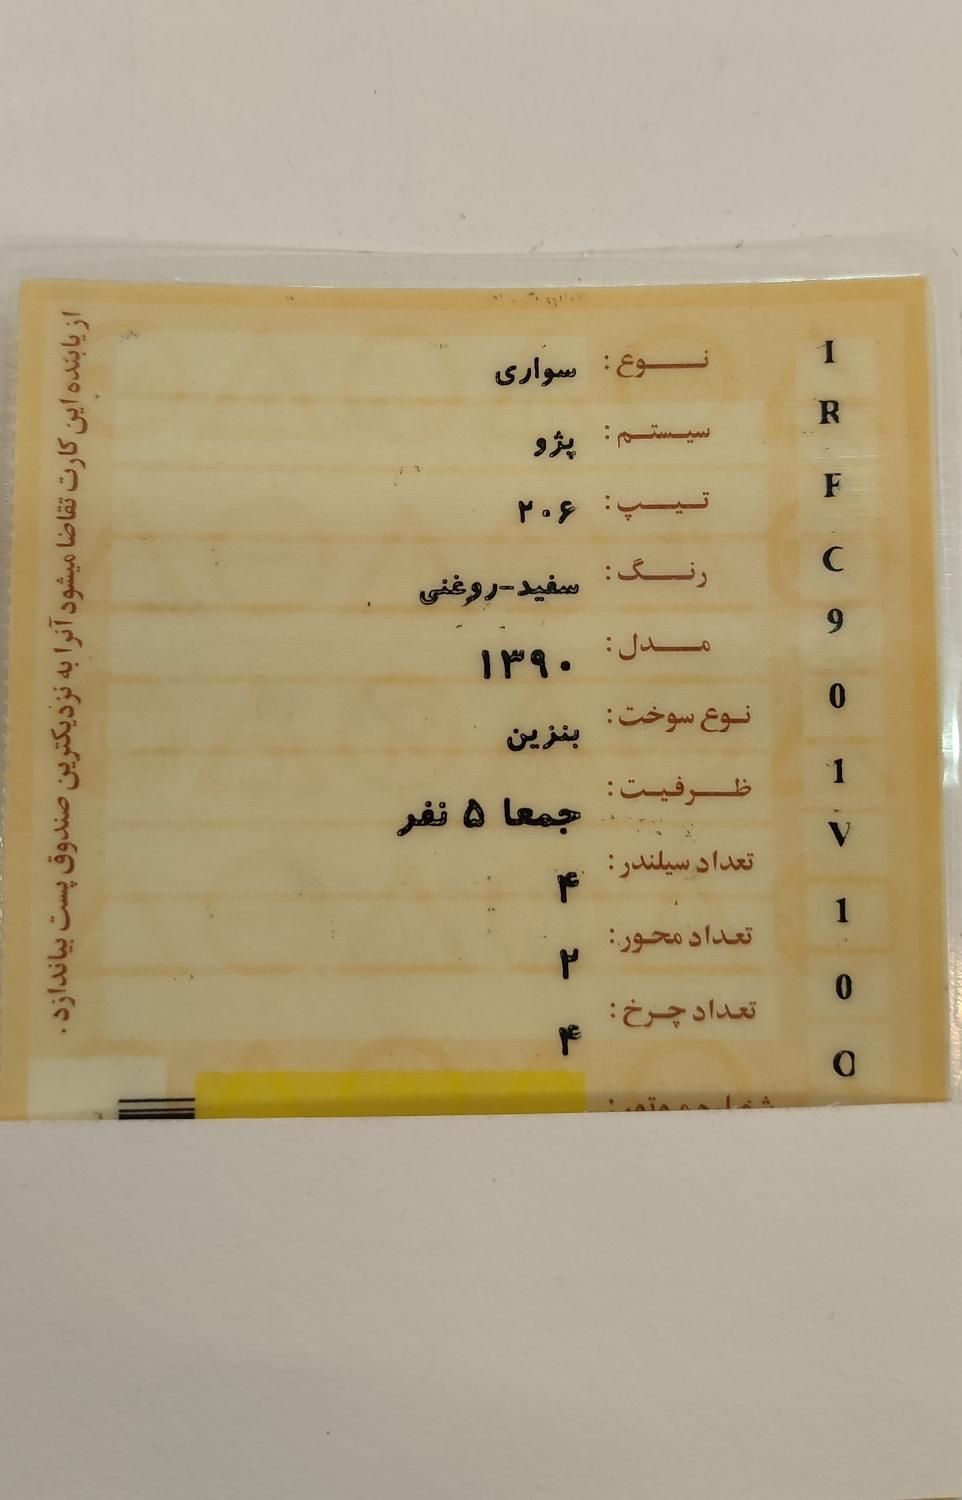 نوع: سواری
سیستم: پژو
تیپ: ۲۰۶
رنگ: سفید-روغنی
مدل: ۱۳۹۰
نوع سوخت: بنزین
ظرفیت: جمعا ۵ نفر
تعداد سیلندر: ۴
تعداد محور: ۲
تعداد چرخ: ۴
I
R
F
C
9
0
1
V
1
0
از یابنده این کارت تقاضا میشود آنرا به نزدیکترین صندوق پست بیاندازد.